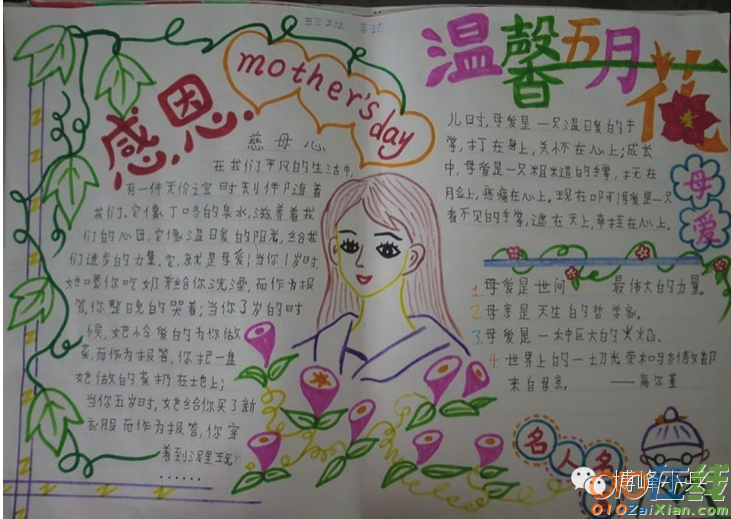 五三班
感恩
mother's day
慈母心
在我们平凡的生活中,
有一件无价之宝时刻伴随着
我们,它像丁咚的泉水,滋养着我
们的心田,它像温暖的阳光,给我
们进步的力量,它就是母爱;当你1岁时,
她喂你吃奶并给你洗澡,而作为报
答,你整晚的哭着;当你3岁的时
候,她怜爱的为你做
菜,而作为报答,你把一盘
她做的菜扔在地上;
当你五岁时,她给你买了新
衣服而作为报答,你穿
着到泥里玩
......
温馨五月花
儿时,母爱是一只温暖的手
掌,打在身上,关怀在心上;成长
中,母爱是一只粗糙的手掌,
脸上,疼痛在心上。现在母爱是一只
看不见的手掌,遮在天上,牵挂在心上。
母爱
1.母爱是世间最伟大的力量。
2.母亲是天生的哲学家。
3.母爱是一种巨大的火焰。
4.世界上的一切光荣和骄傲都
来自母亲。——高尔基
名人名
博峰
010在线
010ZaiXian.com